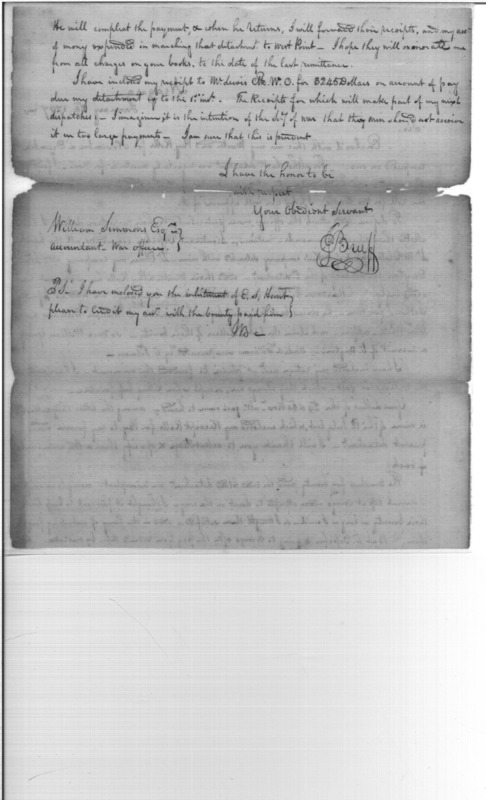 He will compleat the payment, & when he returns, I will forward their receipts, and my acc
of money expended in marching that detachment to West Point – I hope they will exonerate me
from all charges on your books, to the date of the last remittance.
I have inclosed my receipt to Mr Lewis W.O. for 3245 Dollars on account of pay
due my detachment up to the 1st inst. The Receipts for which will make part of my next
dispatches – I imagine it is the intention of the Secy of war that they men should not receive
it in too large payments – I am sure that this is prudent
I have the honor to be
with respect
Your Obedient Servant
William Simmons Esqr
accountant War office
JBruff
PS. I have inclosed you the inlistment of E. S,
please to credit my acct with the bounty paid him
JB